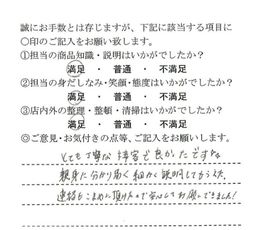 誠にお手数とは存じますが、下記に該当する項目に
〇印のご記入をお願い致します。
①担当の商品知識・説明はいかがでしたか？
満足 ・ 普通 ・ 不満足
②担当の身だしなみ・笑顔・態度はいかがでしたか？
満足 ・ 普通 ・ 不満足
③店内外の整理・整頓・清掃はいかがでしたか？
満足 ・ 普通 ・ 不満足
◎ご意見・お気付きの点等、ご記入をお願いします。
とても丁寧な接客で良かったですね
親身に分かり易く細かく説明してもらえた
連絡もこまめに頂けたので安心してお願いできました！